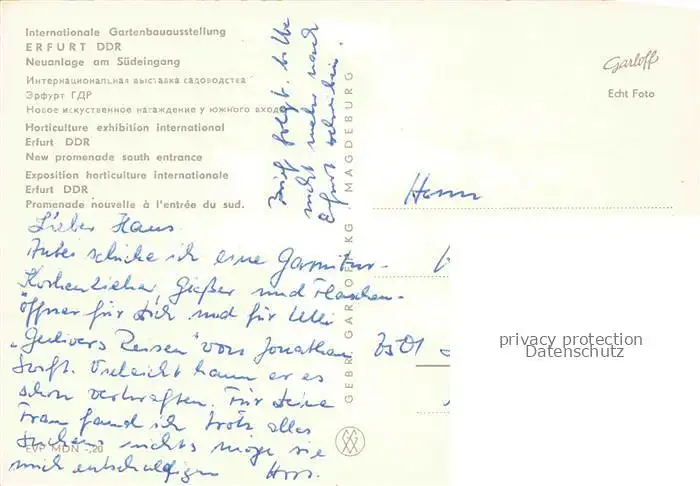 Internationale Gartenbauausstellung
ERFURT DDR
Neuanlage am Südeingang
Интернациональная выставка садоводства
Эрфурт ГДР
Новое искуственное насаждение у южного входа
Horticulture exhibition international
Erfurt DDR
New promenade south entrance
Exposition horticulture internationale
Erfurt DDR
Promenade nouvelle à l'entrée du sud.
Lieber Hans
Anbei schicke ich eine Garnitur-
Korkenzieher, Gießer und Flaschen-
öffner für Dich und für Ulli
„Gulivers Reisen" von Jonathan
Swift. Vieleicht kann er es
schon verkraften. Für Deine
Frau fand ich trotz alles
Suchens nichts möge sie
mich entschuldigen
EVP MDN -,20
Brief folgt. bitte
nicht mehr nach
Erfurt schreiben.
GEBR. GARLOFF KG, MAGDEBURG
Garloff
Echt Foto
Herrn
7501
privacy protection
Datenschutz